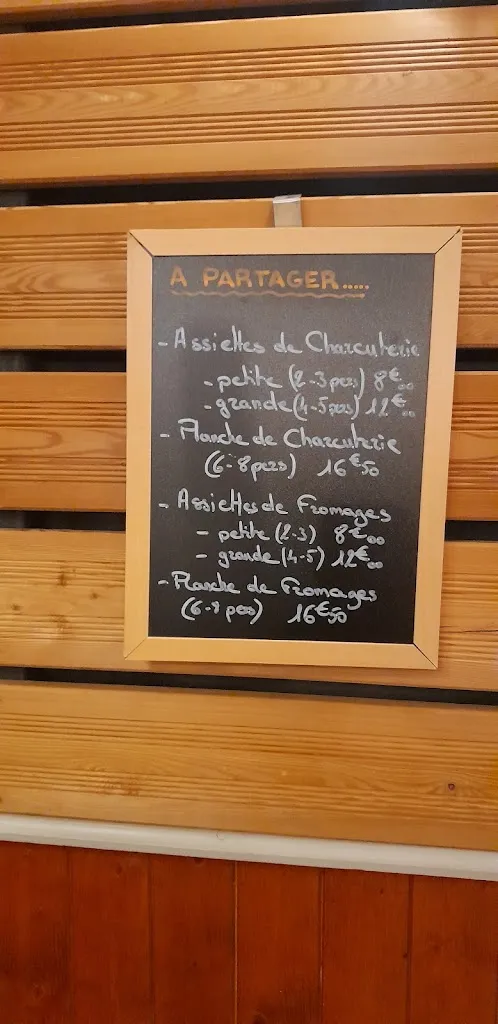 A PARTAGER.....
- Assiettes de Charcuterie
- petite (2-3 pers) 8€00
- grande (4-5 pers) 12€00
- Planche de Charcuterie
(6-8 pers) 16€50
- Assiettes de Fromages
- petite (2-3) 8€00
- grande (4-5) 12€00
- Planche de Fromages
(6-8 pers) 16€50